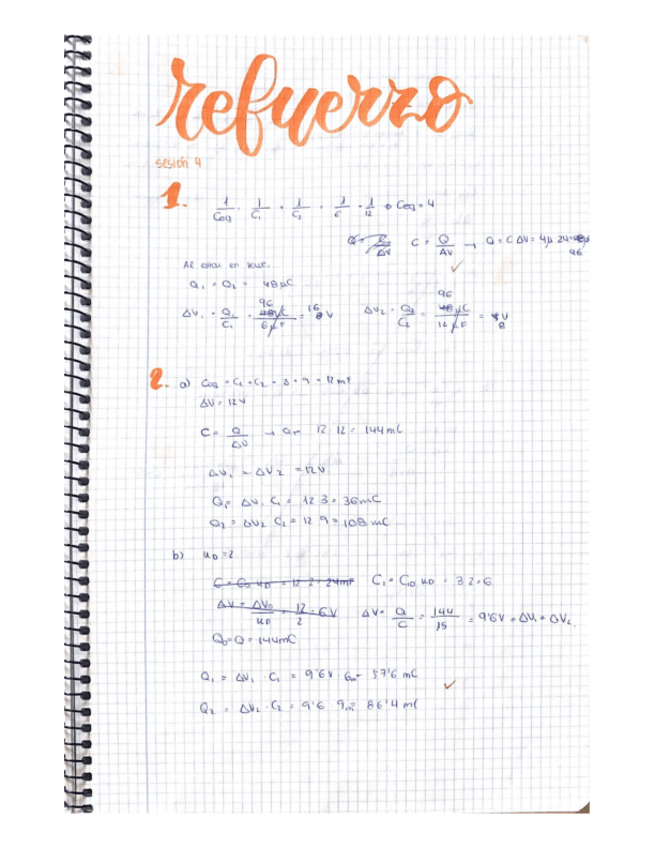 refuerzo
sesión 4
1. 1/Ceq = 1/C1 + 1/C2 = 1/6 + 1/12 → Ceq = 4
C = Q/ΔV → Q = C ΔV = 4μ 24 = 96
Al estar en
Q1 = Q2 = 48μC
ΔV1 = Q1/C1 = 96/6μF = 16 V ΔV2 = Q2/C2 = 96/12μF = 8 V
2. a) Ceq = C1 + C2 = 3 + 9 = 12mF
ΔV = 12V
C = Q/ΔV → Q = 12 · 12 = 144mC
ΔV1 = ΔV2 = 12V
Q1 = ΔV1 C1 = 12 · 3 = 36mC
Q2 = ΔV2 C2 = 12 · 9 = 108 mC
b) κD = 2
C = C0 κD = 12 · 2 = 24mF C1 = C10 κD = 3 · 2 = 6
ΔV = ΔV0/κD = 12/2 = 6V ΔV = Q/C = 144/15 = 9'6V = ΔV1 = ΔV2.
Q0 = Q = 144mC
Q1 = ΔV1 · C1 = 9'6V · 6m = 57'6 mC
Q2 = ΔV2 · C2 = 9'6 · 9m = 86'4 mC